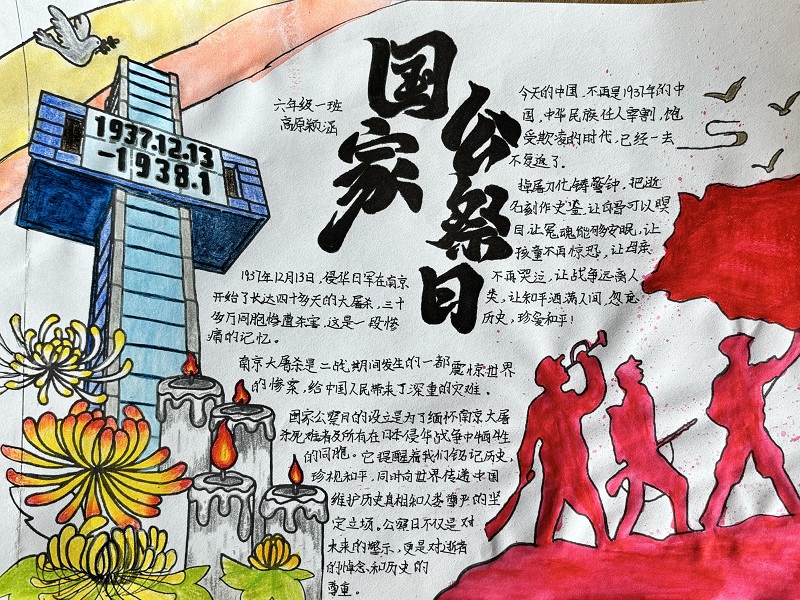 国家
公祭日
六年级一班
高原颖涵
1937.12.13
-1938.1
今天的中国,不再是1937年的中
国,中华民族任人宰割,饱
受欺凌的时代,已经一去
不复返了。
掉屠刀化铸警钟,把逝
名刻作史鉴,让白骨可以瞑
目,让冤魂能够安眠,让
孩童不再惊恐,让母亲
不再哭泣,让战争远离人
类,让和平洒满人间,勿忘
历史,珍爱和平!
1937年12月13日,侵华日军在南京
开始了长达四十多天的大屠杀,三十
多万同胞惨遭杀害,这是一段惨
痛的记忆。
南京大屠杀是二战期间发生的一部震惊世界
的惨案,给中国人民带来了深重的灾难。
国家公祭日的设立是为了缅怀南京大屠
杀死难者及所有在日本侵华战争中牺牲
的同胞。它提醒着我们铭记历史,
珍视和平,同时向世界传递中国
维护历史真相和人类尊严的坚
定立场,公祭日不仅是对
未来的警示,更是对逝者
的悼念和历史的
尊重。